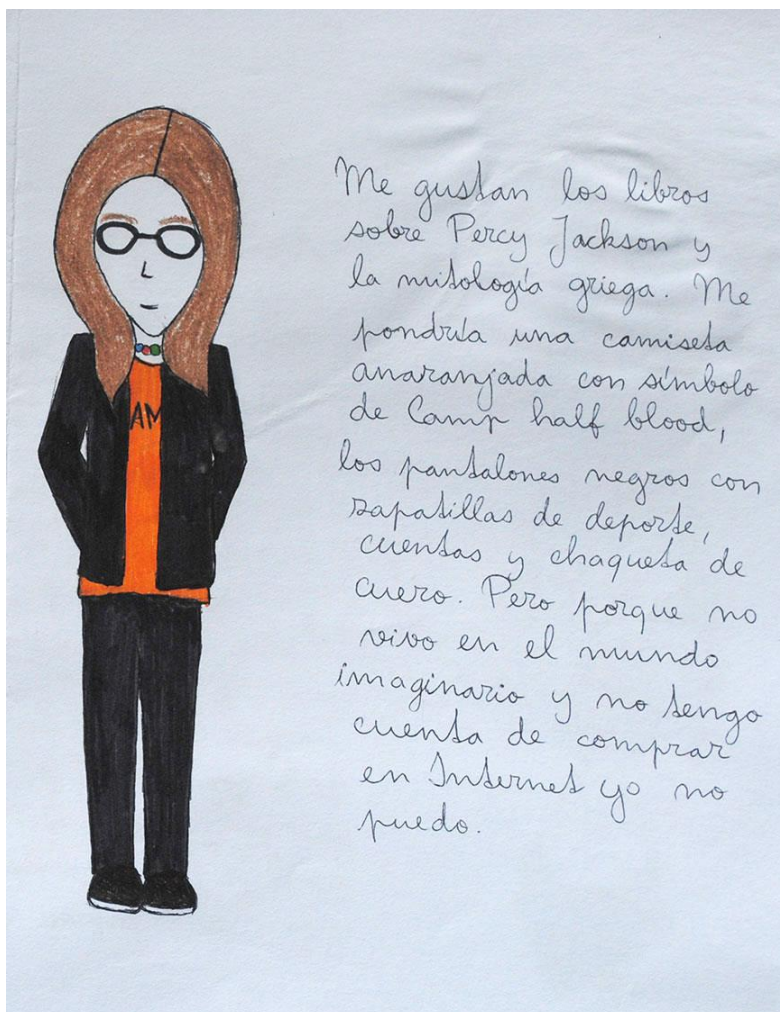 AM
Me gustan los libros
sobre Percy Jackson y
la mitología griega. Me
pondría una camiseta
anaranjada con símbolo
de Camp half blood,
los pantalones negros con
zapatillas de deporte,
cuentas y chaqueta de
cuero. Pero porque no
vivo en el mundo
imaginario y no tengo
cuenta de comprar
en Internet yo no
puedo.